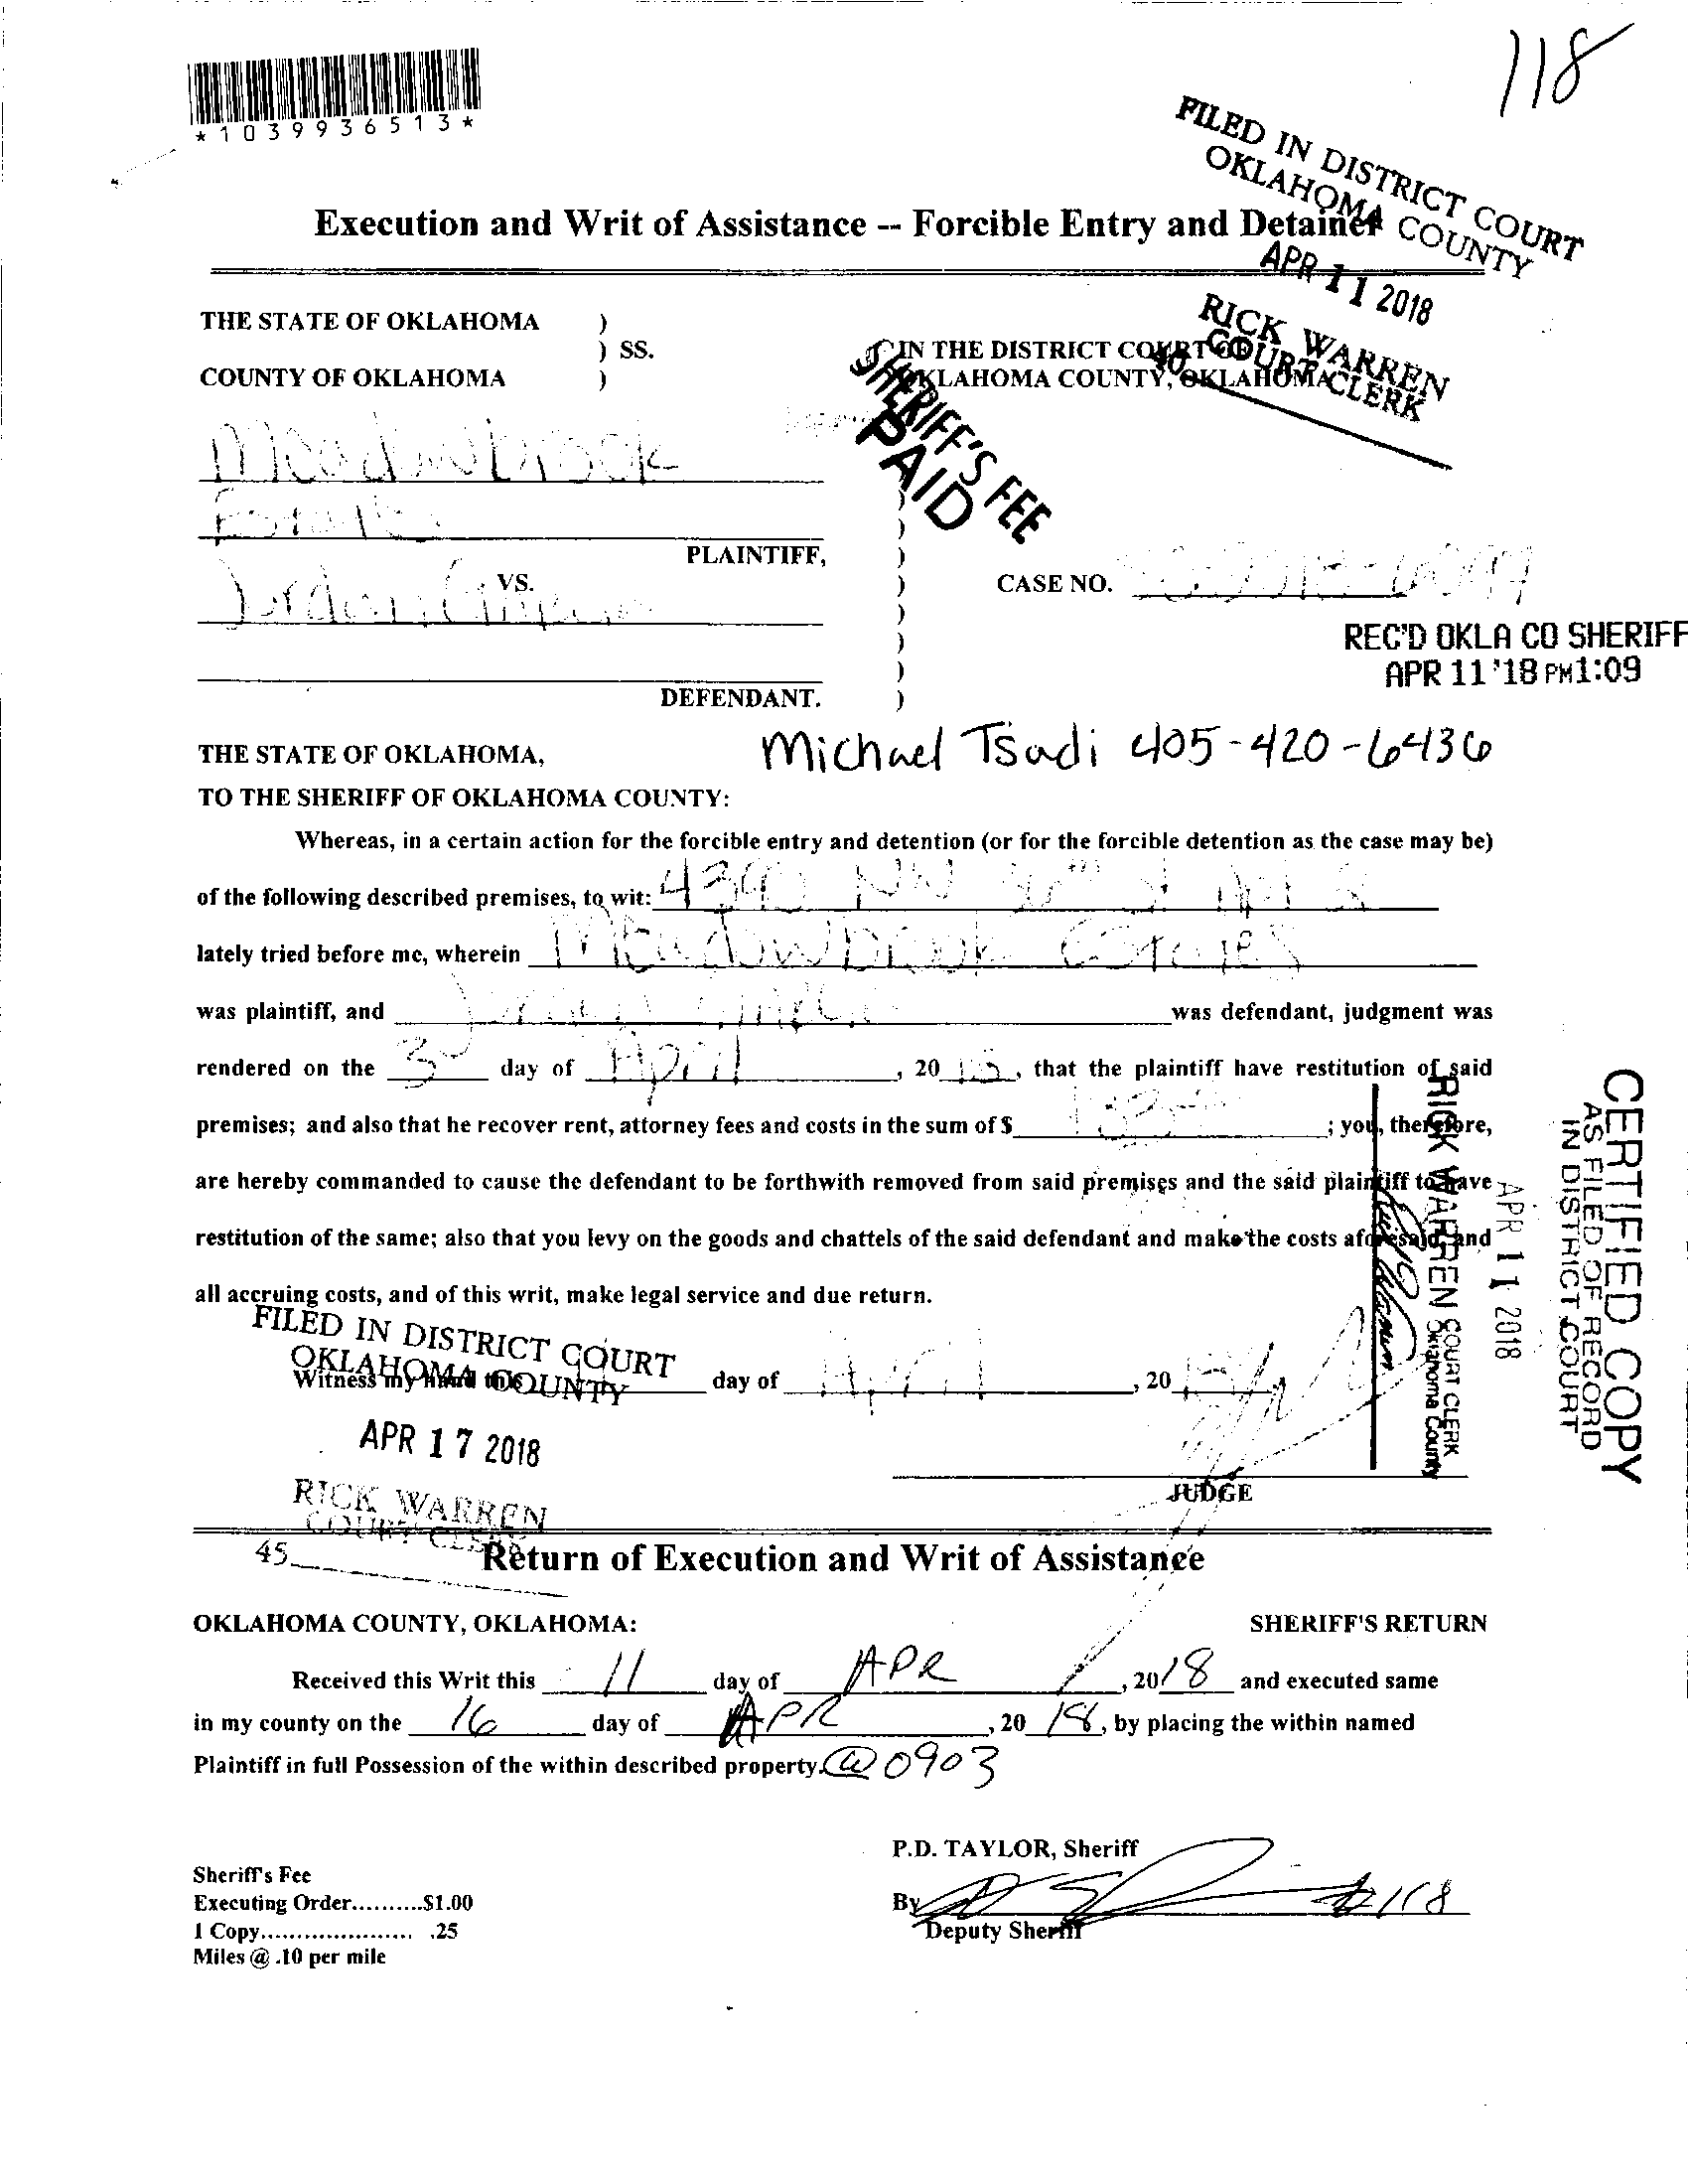 118
*1039936513*
FILED IN DISTRICT COURT
OKLAHOMA COUNTY
APR 11 2018
RICK WARREN
COURT CLERK
40
Execution and Writ of Assistance -- Forcible Entry and Detainer
THE STATE OF OKLAHOMA )
) SS.
COUNTY OF OKLAHOMA )
IN THE DISTRICT COURT OF
OKLAHOMA COUNTY, OKLAHOMA
SHERIFF'S FEE
PAID
Meadowbrook
Estates
PLAINTIFF, )
VS. ) CASE NO.
Jordan
REC'D OKLA CO SHERIFF
APR 11 '18 PM 1:09
DEFENDANT. )
Michael Tsadi 405-420-6436
THE STATE OF OKLAHOMA,
TO THE SHERIFF OF OKLAHOMA COUNTY:
Whereas, in a certain action for the forcible entry and detention (or for the forcible detention as the case may be)
of the following described premises, to wit: NW St Apt
lately tried before me, wherein Meadowbrook Estates
was plaintiff, and was defendant, judgment was
rendered on the 3rd day of April, 2018, that the plaintiff have restitution of said
premises; and also that he recover rent, attorney fees and costs in the sum of $ ; you, therefore,
are hereby commanded to cause the defendant to be forthwith removed from said premises and the said plaintiff to have
restitution of the same; also that you levy on the goods and chattels of the said defendant and make the costs aforesaid, and
all accruing costs, and of this writ, make legal service and due return.
CERTIFIED COPY
AS FILED OF RECORD
IN DISTRICT COURT
APR 11 2018
RICK WARREN COURT CLERK
Oklahoma County
FILED IN DISTRICT COURT
OKLAHOMA COUNTY
Witness my hand this day of April, 20
APR 17 2018
RICK WARREN
COURT CLERK
45
JUDGE
Return of Execution and Writ of Assistance
OKLAHOMA COUNTY, OKLAHOMA: SHERIFF'S RETURN
Received this Writ this 11 day of APR, 2018 and executed same
in my county on the 16 day of APR, 2018, by placing the within named
Plaintiff in full Possession of the within described property. @ 0903
P.D. TAYLOR, Sheriff
Sheriff's Fee
Executing Order..........$1.00
By #118
Deputy Sheriff
1 Copy..................... .25
Miles @ .10 per mile